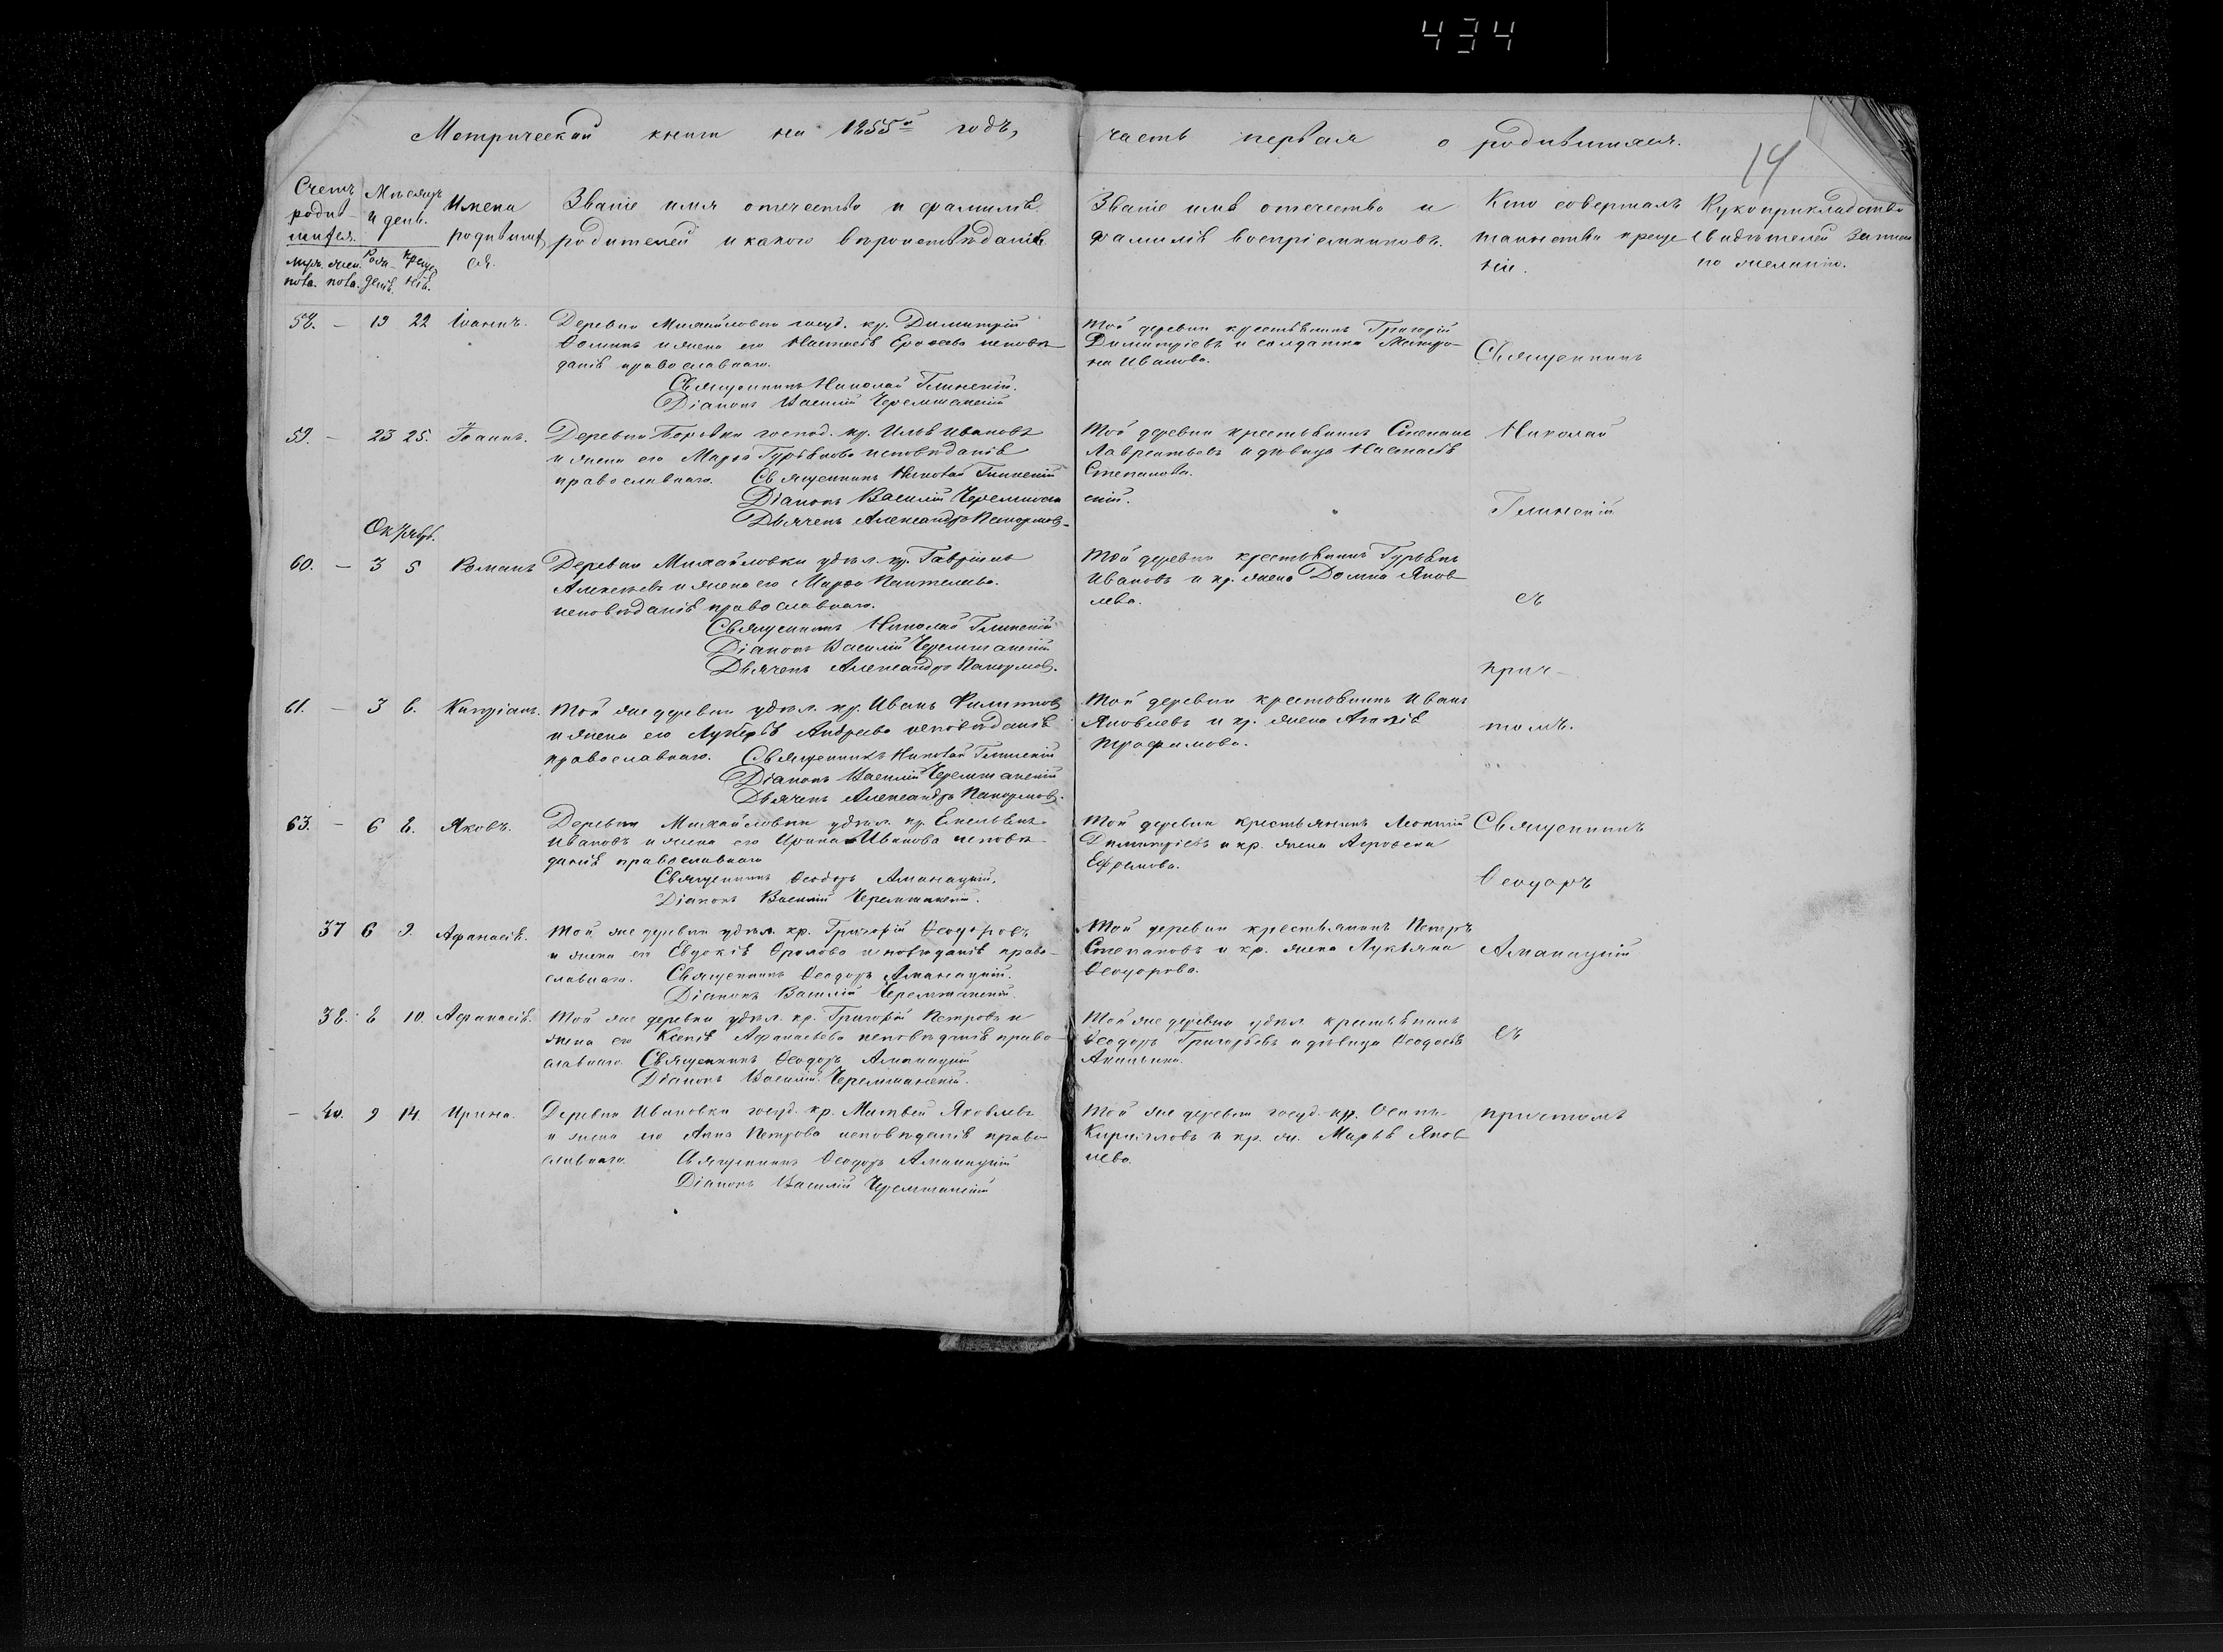 434
Метрической книги на 1855й годъ,
часть первая о родившихся.
14
Счетъ родив-шихся.
Муж. пола. жен. пола.
Мѣсяцъ и день.
Рож-денія. Креще-нія.
Имена родившихся.
Званіе имя отечество и фамилія
родителей и какого вѣроисповѣданія.
Званіе имя отечество и
фамилія воспріемниковъ.
Кто совершалъ
таинство креще
нія.
Рукоприкладство
свидѣтелей записи
по желанію.
58. — 19 22 Іоаннъ.
Деревни Михайловки госуд. кр. Димитрій
Ѳоминъ и жена его Настасія исповѣ
данія православнаго.
Священникъ Николай Глинскій.
Діаконъ Василій Черемшанскій
Той деревни крестьянинъ Григорій
Димитріевъ и солдатка Матро-
на Иванова.
Священникъ
59. — 23 25. Іоаннъ.
Деревни Боровки господ. кр. Илья Ивановъ
и жена его Марѳа Гурьянова исповѣданія
православнаго. Священникъ Николай Глинскій
Діаконъ Василій Черемшан
скій.
Дьячекъ Александръ Панормовъ
Той деревни крестьянинъ Степанъ
Лаврентьевъ и дѣвица Настасья
Степанова.
Николай
Глинскій
Октябрь.
60. — 3 5 Романъ
Деревни Михайловки удѣл. кр. Гавріилъ
Алексѣевъ и жена его Марѳа Пантелева.
исповѣданія православнаго.
Священникъ Николай Глинскій
Діаконъ Василій Черемшанскій
Дьячекъ Александръ Панормовъ.
Той деревни крестьянинъ Гурьянъ
Ивановъ и кр. жена Домна Яков
лева.
съ
прич-
61. — 3 6. Кипріанъ.
Той же деревни удѣл. кр. Иванъ Филиповъ
и жена его Лукерья Андреева исповѣданія
православнаго. Священникъ Николай Глинскій
Діаконъ Василій Черемшанскій
Дьячекъ Александръ Панормовъ.
Той деревни крестьянинъ Иванъ
Яковлевъ и кр. жена Агаѳія
Трофимова.
томъ.
63. — 6 8. Яковъ.
Деревни Михайловки удѣл. кр. Емельянъ
Ивановъ и жена его Ирина Иванова исповѣ
данія православнаго
Священникъ Ѳеодоръ Аманацкій.
Діаконъ Василій Черемшанскій.
Той деревни крестьянинъ Леонтій
Димитріевъ и кр. жена
Ефремова.
Священникъ
Ѳеодоръ
37 6 9. Афанасія.
Той же деревни удѣл. кр. Григорій Ѳеодоровъ
и жена его Евдокія Фролова исповѣданія право-
славнаго. Священникъ Ѳеодоръ Аманацкій.
Діаконъ Василій Черемшанскій.
Той деревни крестьянинъ Петръ
Степановъ и кр. жена Лукіяна
Ѳеодорова.
Аманацкій
38. 8 10. Афанасія.
Той же деревни удѣл. кр. Григорій Петровъ и
жена его Ксенія Афанасьева исповѣданія право-
славнаго. Священникъ Ѳеодоръ Аманацкій
Діаконъ Василій Черемшанскій.
Той же деревни удѣл. крестьянинъ
Ѳеодоръ Григорьевъ и дѣвица Ѳеодосія
съ
— 40. 9 14. Ирина.
Деревни Ивановки госуд. кр. Матвей Яковлевъ
и жена его Анна Петрова исповѣданія право-
славнаго. Священникъ Ѳеодоръ Аманацкій
Діаконъ Василій Черемшанскій
Той же деревни госуд. кр. Осипъ
Кирилловъ и кр. ж. Марья Яков
лева.
причтомъ